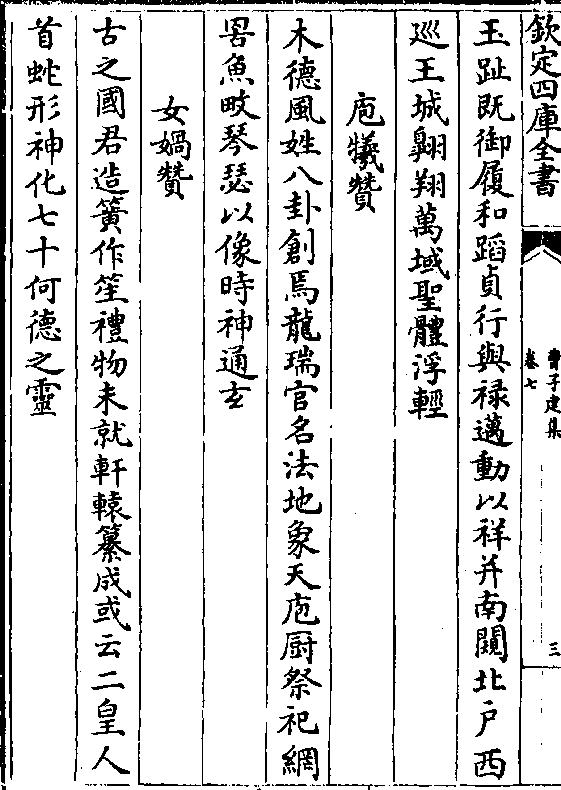 欽定四庫全書
曹子建集
卷七
三
玉趾既御履和蹈貞行與禄邁動以祥并南闚北户西
巡王城翺翔萬域聖體浮輕
庖犧贊
木德風姓八卦創焉龍瑞官名法地象天庖厨祭祀網
罟魚畋琴瑟以像時神通玄
女媧贊
古之國君造簧作笙禮物未就軒轅纂成或云二皇人
首蛇形神化七十何德之靈